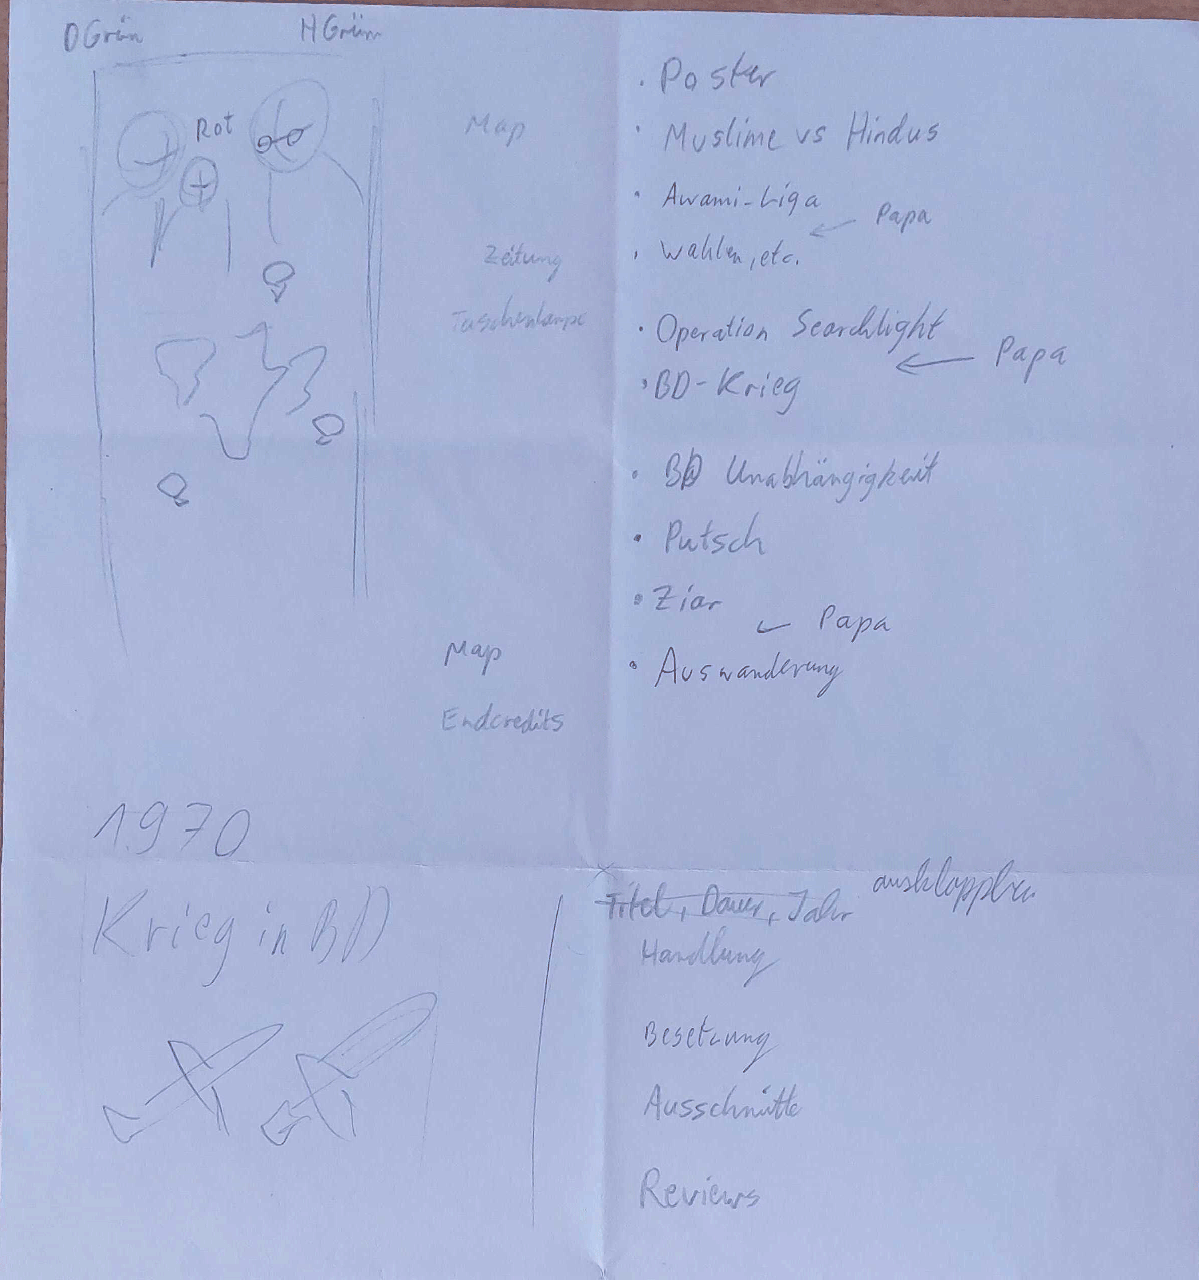 D Grün
H Grün
Rot
Map
Zeitung
Taschenlampe
Map
Endcredits
• Poster
• Muslime vs Hindus
• Awami-Liga
← Papa
• Wahlen, etc.
• Operation Searchlight
← Papa
• BD-Krieg
• BD Unabhängigkeit
• Putsch
• Ziar
← Papa
• Auswanderung
1970
Krieg in BD
Titel, Dauer, Jahr
ausklappbar
Handlung
Besetzung
Ausschnitte
Reviews